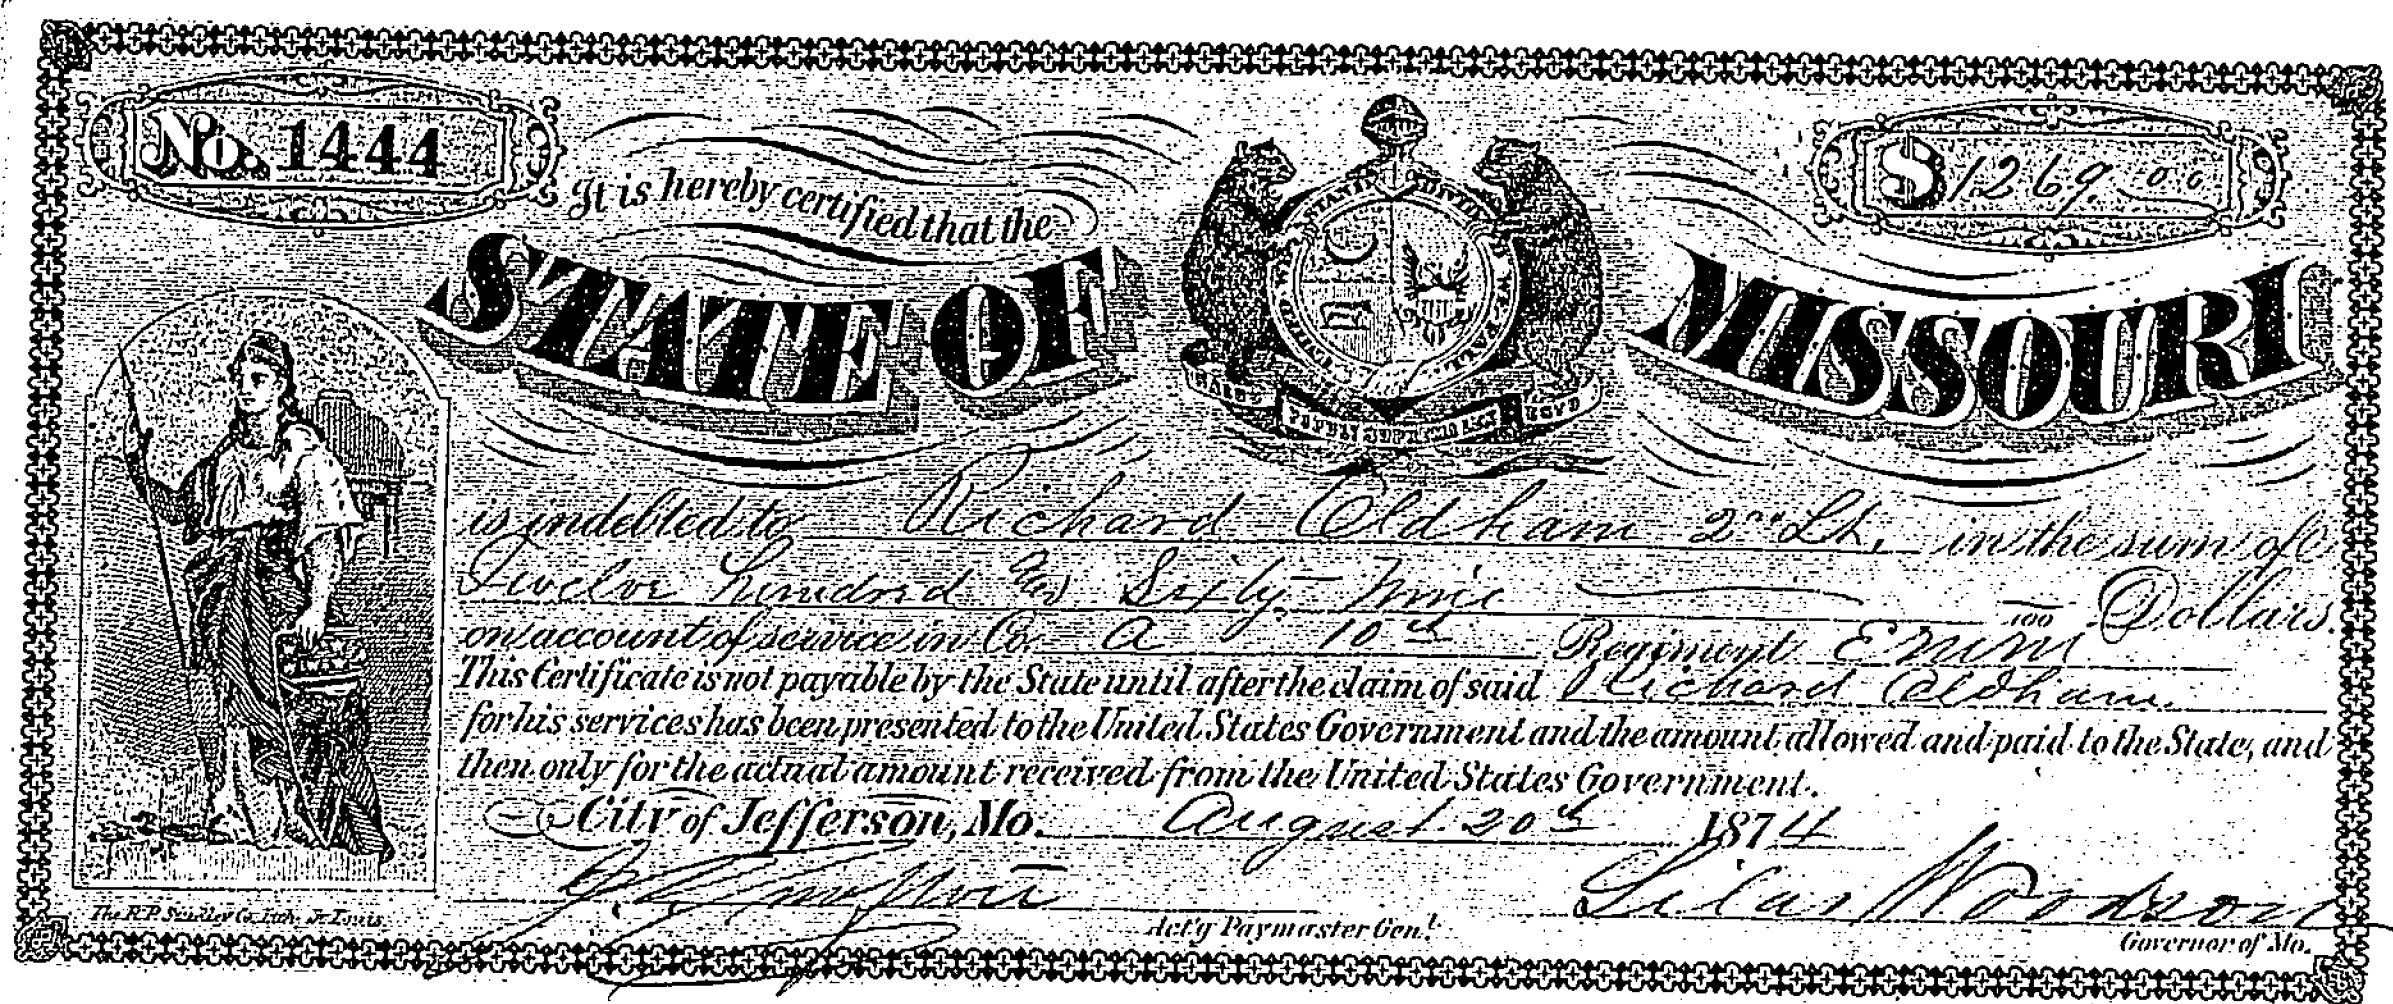 No. 1444
$ 1269.00
It is hereby certified that the
STATE OF MISSOURI
UNITED WE STAND DIVIDED WE FALL
SALUS POPULI SUPREMA LEX ESTO
is indebted to Richard Oldham 2nd Lt, in the sum of
Twelve hundred and Sixty Nine /100 Dollars.
on account of service in Co. A 10th Regiment EMM
This Certificate is not payable by the State until after the claim of said Richard Oldham.
for his services has been presented to the United States Government and the amount allowed and paid to the State, and
then only for the actual amount received from the United States Government.
City of Jefferson, Mo. August 20th 1874
Silas Woodson
Act'g Paymaster Gen'l
Governor of Mo.
The R.P. Studley Co. Lith. St. Louis